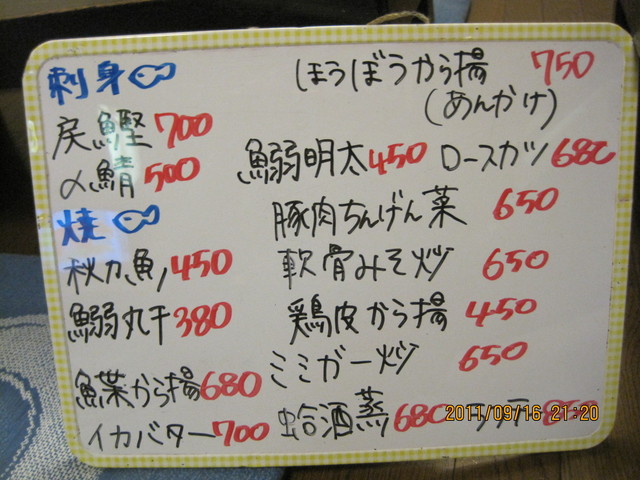 刺身
戻鰹 700
〆鯖 500
焼
秋刀魚 450
鰯丸干 380
鰈から揚 680
イカバター 700
ほうぼうから揚 750
(あんかけ)
鰯明太 450 ロースカツ 680
豚肉ちんげん菜 650
軟骨みそ炒 650
鶏皮から揚 450
ミミガー炒 650
蛤酒蒸 680
2011/09/16 21:20